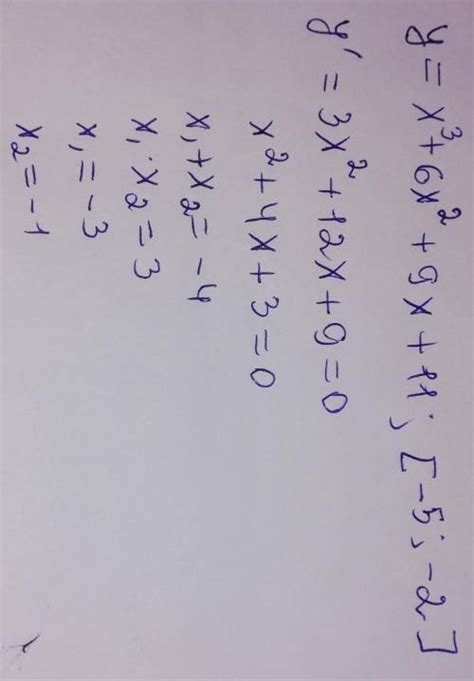 y = x³ + 6x² + 9x + 11; [-5; -2]
y' = 3x² + 12x + 9 = 0
x² + 4x + 3 = 0
x₁ + x₂ = -4
x₁ · x₂ = 3
x₁ = -3
x₂ = -1